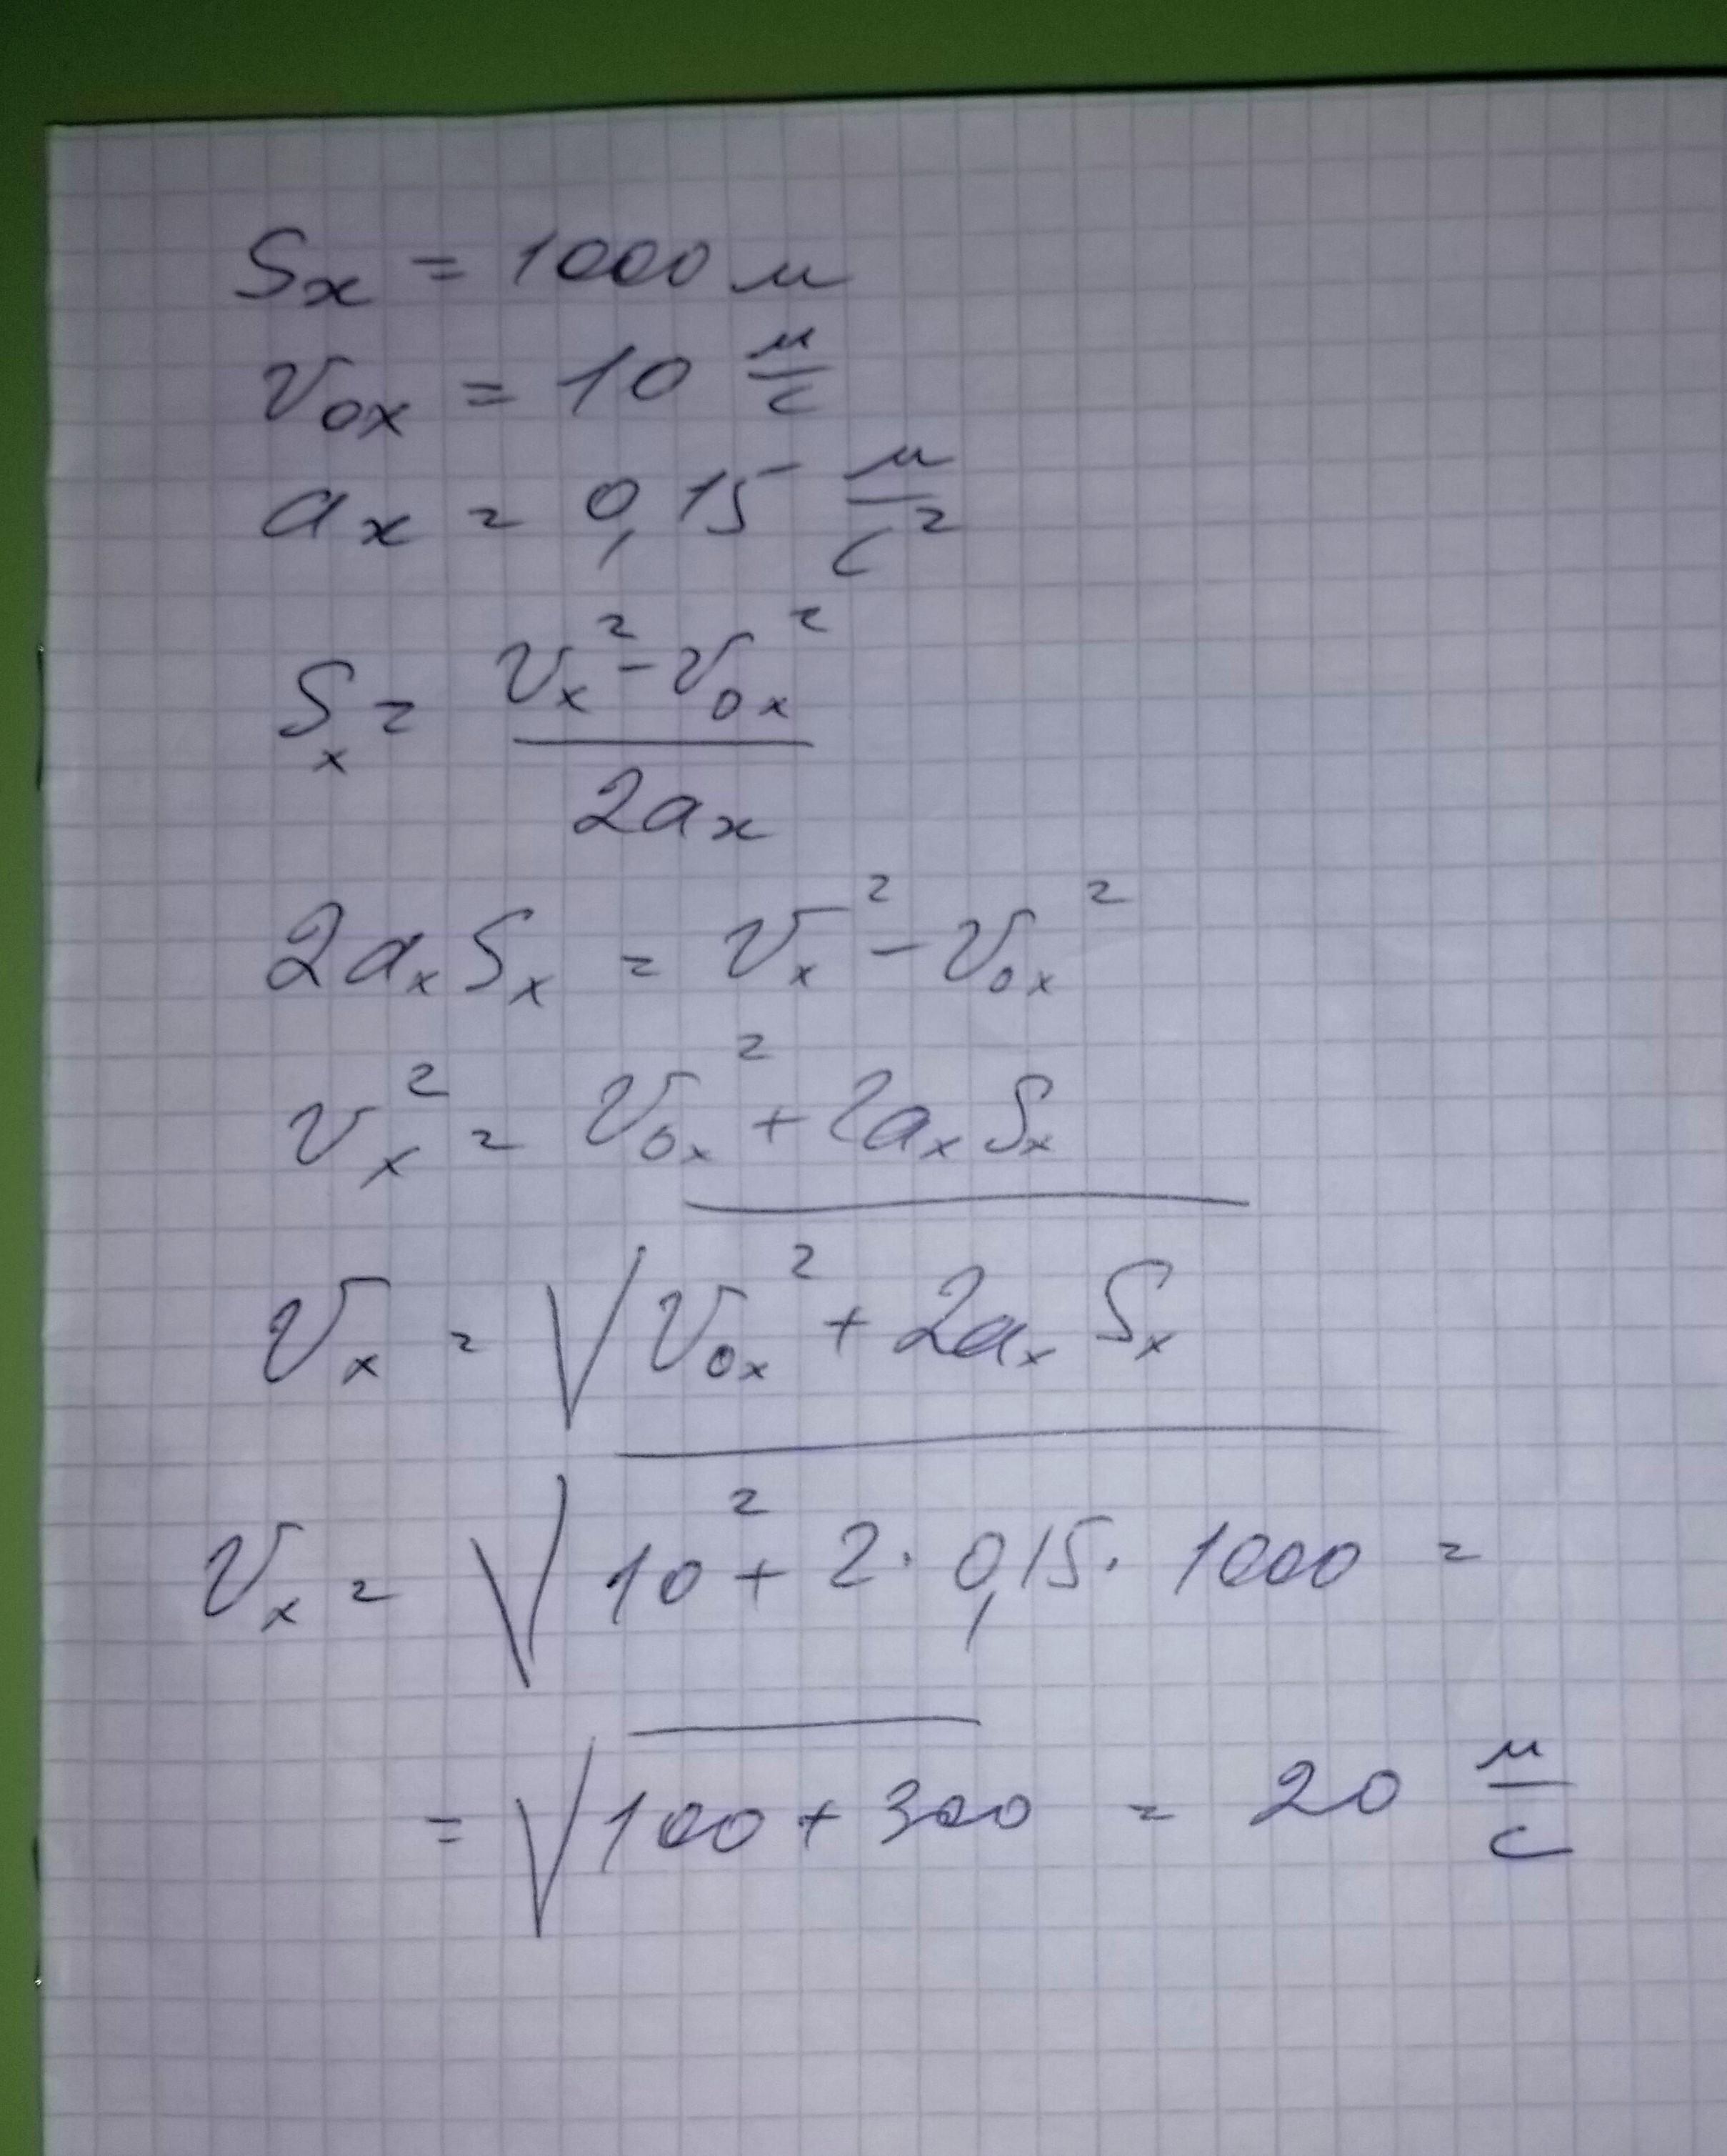 Sₓ = 1000 м
v₀ₓ = 10 м/с
aₓ = 0,15 м/с²
Sₓ = (vₓ² - v₀ₓ²) / 2aₓ
2aₓSₓ = vₓ² - v₀ₓ²
vₓ² = v₀ₓ² + 2aₓSₓ
vₓ = √(v₀ₓ² + 2aₓSₓ)
vₓ = √(10² + 2 · 0,15 · 1000) =
= √(100 + 300) = 20 м/с